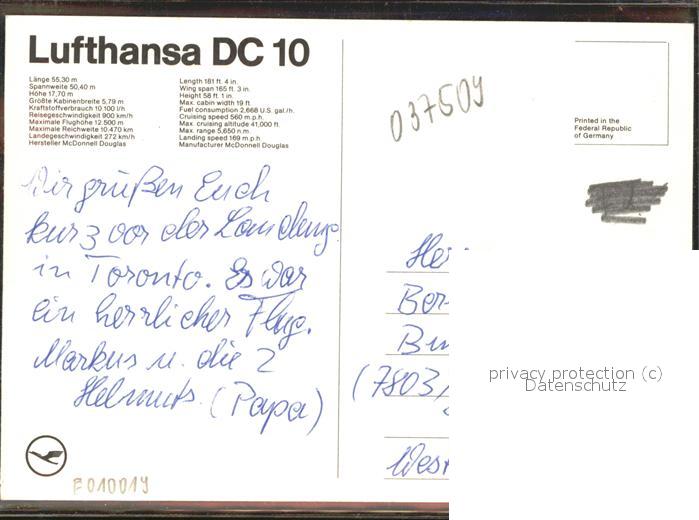 Lufthansa DC 10
Länge 55,30 m
Spannweite 50,40 m
Höhe 17,70 m
Größte Kabinenbreite 5,79 m
Kraftstoffverbrauch 10 100 l/h
Reisegeschwindigkeit 900 km/h
Maximale Flughöhe 12.500 m
Maximale Reichweite 10.470 km
Landegeschwindigkeit 272 km/h
Hersteller McDonnell Douglas
Length 181 ft. 4 in.
Wing span 165 ft. 3 in.
Height 58 ft. 1 in.
Max. cabin width 19 ft.
Fuel consumption 2,668 U.S. gal./h.
Cruising speed 560 m.p.h.
Max. cruising altitude 41,000 ft.
Max. range 5,650 n.m
Landing speed 169 m.p.h
Manufacturer McDonnell Douglas
037509
Printed in the
Federal Republic
of Germany
Wir grüßen Euch
kurz vor der Landung
in Toronto. Es war
ein herrlicher Flug.
Markus u. die 2
Helmuts. (Papa)
Her
Ber
Bu
(7803
West
privacy protection (c)
Datenschutz
F010019